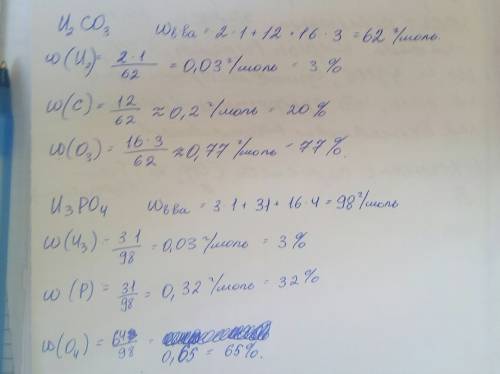 H₂CO₃ ω в-ва = 2·1+12+16·3 = 62 г/моль.
ω(H₂) = 2·1/62 = 0,03 г/моль = 3%
ω(C) = 12/62 ≈ 0,2 г/моль = 20%
ω(O₃) = 16·3/62 ≈ 0,77 г/моль = 77%.
H₃PO₄ ω в-ва = 3·1+31+16·4 = 98 г/моль
ω(H₃) = 3·1/98 = 0,03 г/моль = 3%
ω(P) = 31/98 = 0,32 г/моль = 32%
ω(O₄) = 64/98 =
0,65 = 65%.